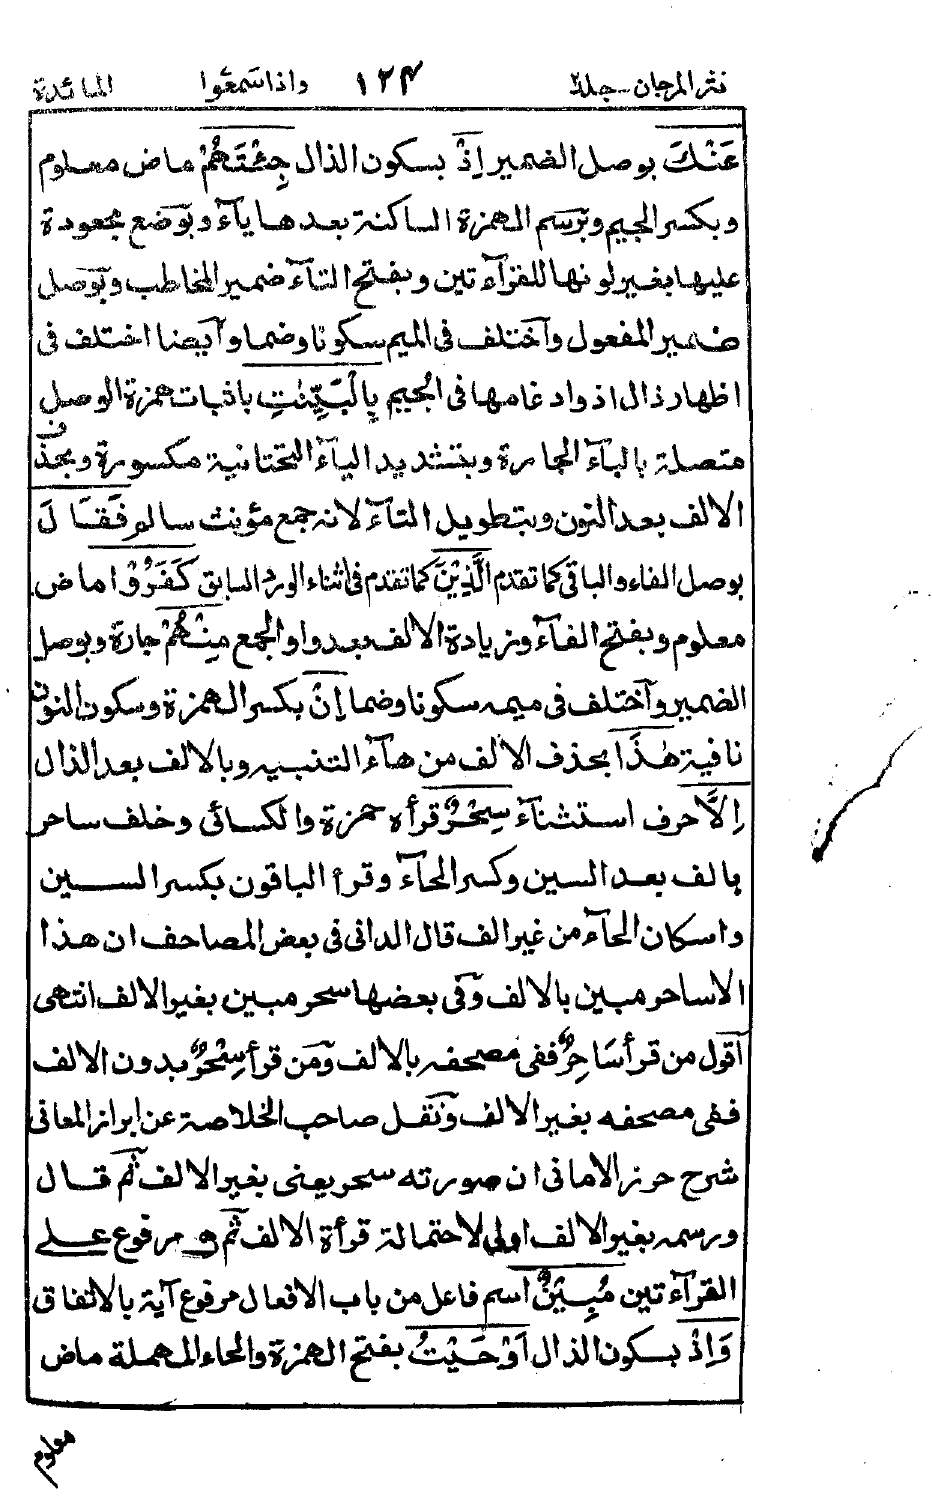 نثر المرجان - جلد ٢ ١٢٤ واذا سمعوا المائدة
عَنْكَ بوصل الضمير اِذْ بسكون الذال جِئْتَهُمْ ماض معلوم
وبكسر الجيم وبرسم الهمزة الساكنة بعدها ياء وبوضع مجعودة
عليها بغير لونها للقراءتين وبفتح التاء ضمير المخاطب وبوصل
ضمير المفعول واختلف فى الميم سكونا وضما وأيضا اختلف فى
اظهار ذال اذ وادغامها فى الجيم بِالْبَيِّنٰتِ باثبات همزة الوصل
متصلة بالباء الجارة وبتشديد الياء التحتانية مكسورة وبحذف
الالف بعد النون وبتطويل التاء لانه جمع مؤنث سالم فَقَالَ
بوصل الفاء والباقى كما تقدم الَّذِيْنَ كما تقدم فى اثناء الورد السابق كَفَرُوْا ماض
معلوم وبفتح الفاء وزيادة الالف بعد واو الجمع مِنْهُمْ جارة وبوصل
الضمير واختلف فى ميمه سكونا وضما اِنْ بكسر الهمزة وسكون النون
نافية هٰذَا بحذف الالف من هاء التنبيه وبالالف بعد الذال
اِلَّا حرف استثناء سِحْرٌ قرأه حمزة والكسائى وخلف ساحر
بالف بعد السين وكسر الحاء وقرأ الباقون بكسر السين
واسكان الحاء من غير الف قال الدانى فى بعض المصاحف ان هذا
الا ساحر مبين بالالف وفى بعضها سحر مبين بغير الالف انتهى
اقول من قرأ سَاحِرٌ ففى مصحفه بالالف ومن قرأ سِحْرٌ بدون الالف
ففى مصحفه بغير الالف ونقل صاحب الخلاصة عن ابراز المعانى
شرح حرز الامانى ان صورته سحر يعنى بغير الالف ثم قال
ورسمه بغير الالف اولى لاحتمالة قرأة الالف ثم هو مرفوع على
القراءتين مُبِيْنٌ اسم فاعل من باب الافعال مرفوع آية بالاتفاق
وَاِذْ بسكون الذال اَوْحَيْتُ بفتح الهمزة والحاء المهملة ماض
معلوم